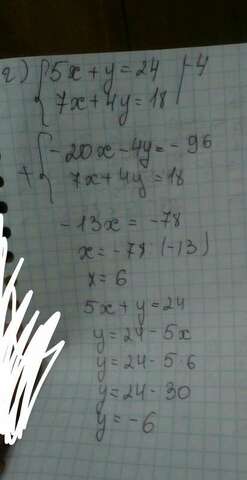 г) { 5x + y = 24 | -4
7x + 4y = 18
+ { -20x - 4y = -96
7x + 4y = 18
-13x = -78
x = -78 (-13)
x = 6
5x + y = 24
y = 24 - 5x
y = 24 - 5·6
y = 24 - 30
y = -6